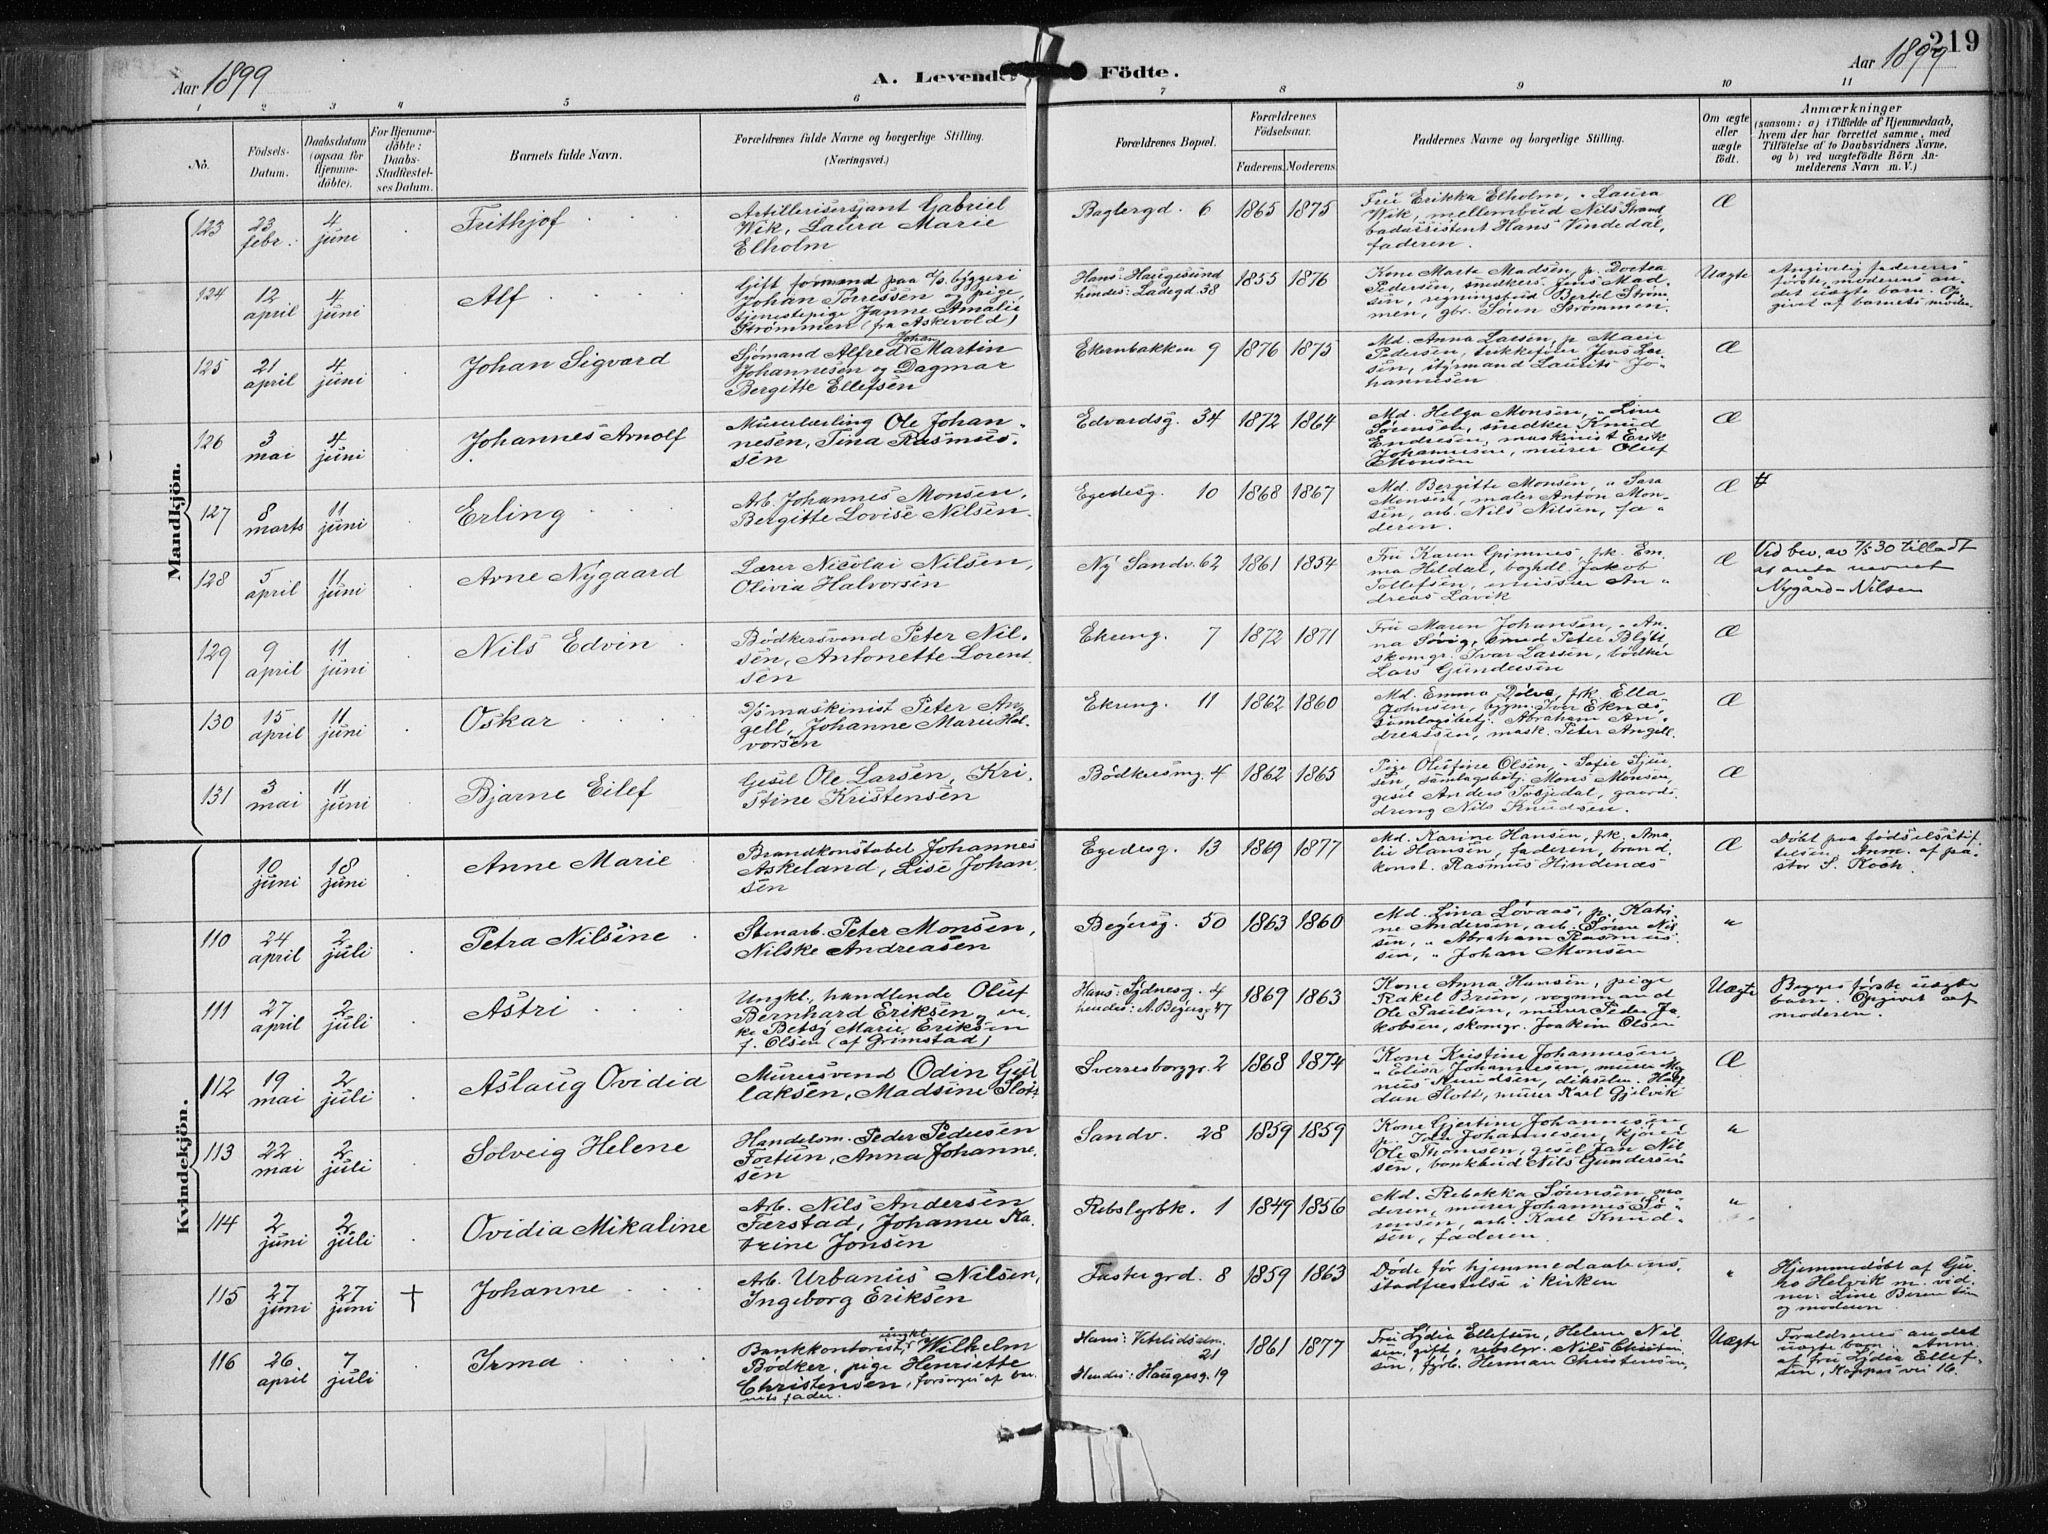 219
Aar 1899
A. Levende Födte.
Aar 1899
1 2 3 4 5 6 7 8 9 10 11
No.
Födsels-Datum.
Daabsdatum (ogsaa for Hjemmedöbte).
For Hjemmedöbte: Daabs-Stadfæstelses Datum.
Barnets fulde Navn.
Forældrenes fulde Navne og borgerlige Stilling. (Næringsvei.)
Forældrenes Bopæl.
Forældrenes Födselsaar.
Faderens. Moderens.
Faddernes Navne og borgerlige Stilling.
Om ægte eller uægte födt.
Anmærkninger (saasom: a) i Tilfælde af Hjemmedaab, hvem der har forrettet samme, med Tilföielse af to Daabsvidners Navne, og b) ved uægtefödte Börn Anmelderens Navn m. V.)
Mandkjön.
123 23 febr. 4 juni Frithjof
Artillerisersjant Gabriel
Wik, Laura Marie
Elholm
Baglergd. 6 1865 1875
Fru Erikka Elholm, " Laura
Wik, mellembud Nils Strand
badassistent Hans Vindedal,
faderen.
Æ
124 12 april 4 juni Alf
Gift formand paa d/s byggeri
Johan Torressen og pige,
tjenestepige Janne Amalie
Strømmen (fra Askevold)
Hans: Haugesund
hendes: Ladegd. 38
1855 1876
Kone Marta Madsen, p. Dortea
Pedersen, snedkers. Jens Madsen,
regningsbud Bertel Strømmen,
gbr. Søren Strømmen.
Uægte
Angivelig faderens
første, moderens andet
uægte barn. Opgivet
af barnets moder.
125 21 april 4 juni Johan Sigvard
Johan
Sjømand Alfred Martin
Johannesen og Dagmar
Bergitte Ellefsen
Ekernbakken 9 1876 1875
Md. Anna Larsen, p. Marie
Pedersen, trikkefører Jens Larsen,
styrmand Laurits Johannesen
Æ
126 3 mai 4 juni Johannes Arnolf
Murerlærling Ole Johannesen,
Tina Rasmussen
Edvardsg. 34 1872 1864
Md. Helga Monsen, " Line
Sørensen, snedker Knud
Endresen, maskinist Erik
Johannesen, murer Oluf
Monsen
Æ
127 8 marts 11 juni Erling
Arb. Johannes Monsen,
Bergitte Lovise Nilsen.
Egedesg. 10 1868 1867
Md. Bergitte Monsen, " Sara
Monsen, maler Anton Monsen,
arb. Nils Nilsen, faderen.
Æ
128 5 april 11 juni Arne Nygaard
Lærer Nicolai Nilsen,
Olivia Halvorsen
Ny Sandv. 62 1861 1854
Fru Karen Grimnes, frk. Emma
Heldal, boghdl. Jakob
Tollefsen, missær Andreas
Lavik
Æ
Ved bev. av 7/5 30 tilladt
at anta navnet
Nygård-Nilsen
129 9 april 11 juni Nils Edvin
Bødkersvend Peter Nilsen,
Antonette Lorentsen
Ekreng. 7 1872 1871
Fru Maren Johansen, " Anna
Søvig, smed Peter Blytt
skomgr. Ivar Larsen, bødker
Lars Gundersen
Æ
130 15 april 11 juni Oskar
D/s maskinist Peter Angell,
Johanne Marie Halvorsen
Ekreng. 11 1862 1860
Md. Emma Dølve, frk. Ella
Johnsen, bygm. Iver Eknæs
samlagsbetj. Abraham Andreassen,
mask. Peter Angell.
Æ
131 3 mai 11 juni Bjarne Eilef
Gesel Ole Larsen, Kristine
Kristensen
Bødkersmg. 4 1862 1865
Pige Olufine Olsen, " Sofie
samlagsbetj. Mons Monsen,
gesel Anders Tosjedal, gaardsdreng
Nils Knudsen.
Æ
Kvindekjön.
10 juni 18 juni Anne Marie
Brandkonstabel Johannes
Askeland, Lise Johansen
Egedesg. 13 1869 1877
Md. Karine Hansen, frk. Amalie
Hansen, faderen, brandkonst.
Rasmus Hindenæs
Æ
Døbt paa fødselsstiftelsen.
Anm. af pastor
S. Koch.
110 24 april 2 juli Petra Nilsine
Stenarb. Peter Monsen,
Nilske Andreasen
Beyersg. 50 1863 1860
Md. Lina Løvaas, p. Katrine
Andersen, arb. Søren Nilsen,
" Abraham Rasmussen,
" Johan Monsen
"
111 27 april 2 juli Astri
Ungkl., handlende Oluf
Bernhard Eriksen, enke
Betsy Marie Eriksen
f. Olsen (af Grimstad)
Hans: Sydnesg. 4
hendes: A. Beyersg. 47
1869 1863
Kone Anna Hansen, pige
Rakel Brun, vognmand
Ole Paulsen, murer Peder Jakobsen,
skomgr. Joakim Olsen
Uægte
Begges første uægte
barn. Opgivet af
moderen.
112 19 mai 2 juli Aslaug Ovidia
Murersvend Odin Gullaksen,
Madsine Slott
Sverresborggr. 2 1868 1874
Kone Kristine Johannesen,
" Elisa Johannesen, murer Magnus
Knudsen, Halfdan
Slott, murer Karl Gjelvik
Æ
113 22 mai 2 juli Solveig Helene
Handelsm. Peder Pedersen
Fortun, Anna Johannesen
Sandv. 28 1859 1859
Kone Gjertine Johannesen,
p. Ida Johannesen, kjører
Ole Thomsen, gesel Jan Nilsen,
bankbud Nils Gundersen
"
114 2 juni 2 juli Ovidia Mikaline
Arb. Nils Andersen
Færstad, Johanne Katrine
Jonsen
Rebslgrbk. 1 1849 1856
Md. Rebekka Sørensen, moderen,
murer Johannes Sørensen,
arb. Karl Knudsen,
faderen.
"
115 27 juni 27 juni † Johanne
Arb. Urbanus Nilsen,
Ingeborg Eriksen
Fastergrd. 8 1859 1863
Døde før hjemmedaabens
stadfæstelse i kirken
"
Hjemmedøbt af
Helvik m. vidner:
Line Berentsen
og moderen.
116 26 april 7 juli Irma
ungkl.
Bankkontorist, Wilhelm
Bødker, pige Henriette
Christensen, forsørges af barnets
fader.
Hans: Vetrlidsalm. 21
Hendes: Haugesg. 19
1861 1877
Fru Lydia Ellefsen, Helene Nilsen,
gift, rebslgr. Nils Christensen,
fyrb. Herman Christensen,
Uægte
Forældrenes andet
uægte barn. Anm.
af fru Lydia Ellefsen,
Kappesvei 16.